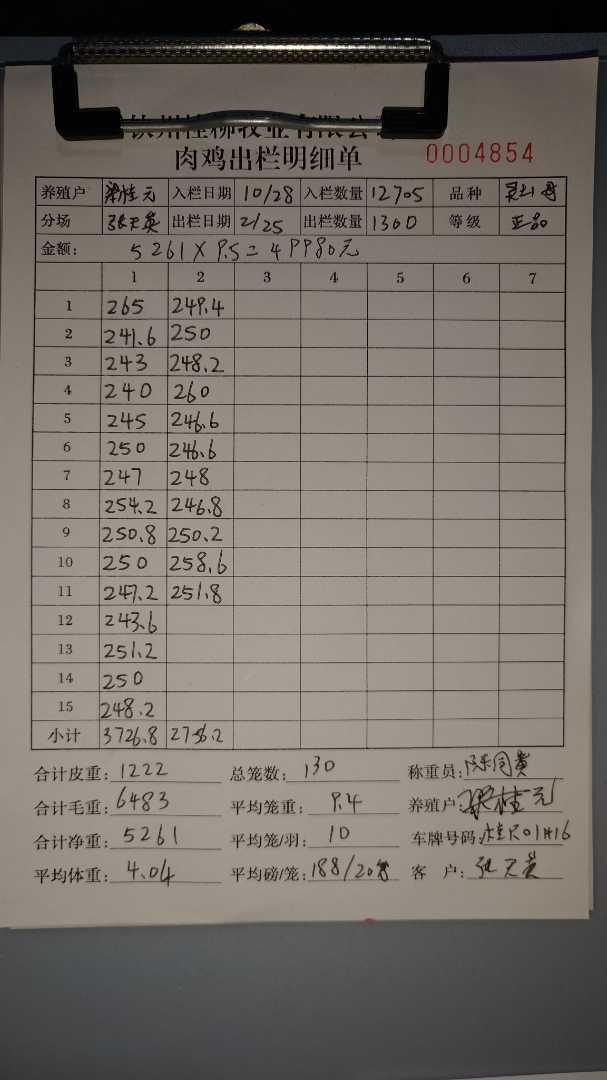 钦州桂柳牧业有限公司
肉鸡出栏明细单 0004854
养殖户 梁桂元 入栏日期 10/28 入栏数量 12705 品种
分场 张天英 出栏日期 2/25 出栏数量 1300 等级 正品
金额: 5261×9.5=49980元
1 2 3 4 5 6 7
1 265 249.4
2 241.6 250
3 243 248.2
4 240 260
5 245 246.6
6 250 246.6
7 247 248
8 254.2 246.8
9 250.8 250.2
10 250 258.6
11 247.2 251.8
12 243.6
13 251.2
14 250
15 248.2
小计 3726.8 2756.2
合计皮重: 1222 总笼数: 130 称重员:
合计毛重: 6483 平均笼重: 9.4 养殖户: 梁桂元
合计净重: 5261 平均笼/羽: 10 车牌号码:
平均体重: 4.04 平均磅/笼: 188/20 客户: 张天英